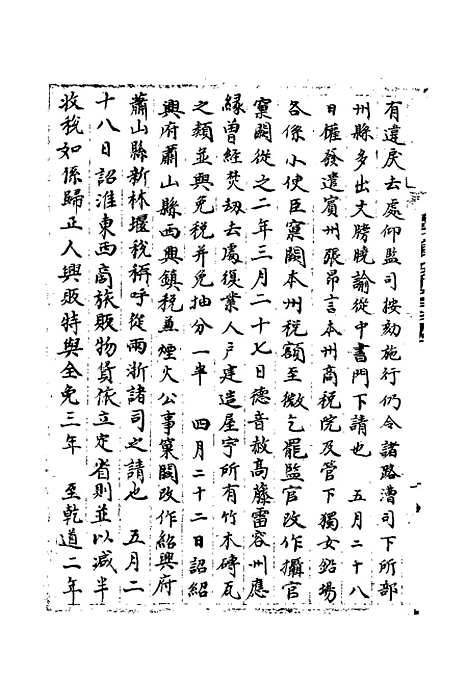 有違戾去處仰監司按劾施行仍令諸路漕司下所部
州縣多出大牓曉諭從中書門下請也　五月二十八
日權發遣賓州張昂言本州商稅院及管下獨女鉛場
各係小使臣窠闕本州稅額至微乞罷監官改作攝官
窠闕從之二年三月二十七日德音赦高藤雷容州應
緣曾經焚刼去處復業人戶建造屋宇所有竹木磚瓦
之類並與免稅并免抽分一半　四月二十二日詔紹
興府蕭山縣西興鎮稅兼煙火公事窠闕改作紹興府
蕭山縣新林堰稅稱呼從兩浙諸司之請也　五月二
十八日詔淮東西商旅販物貨依立定省則並以減半
收稅如係歸正人興販特與全免三年　至乾道二年